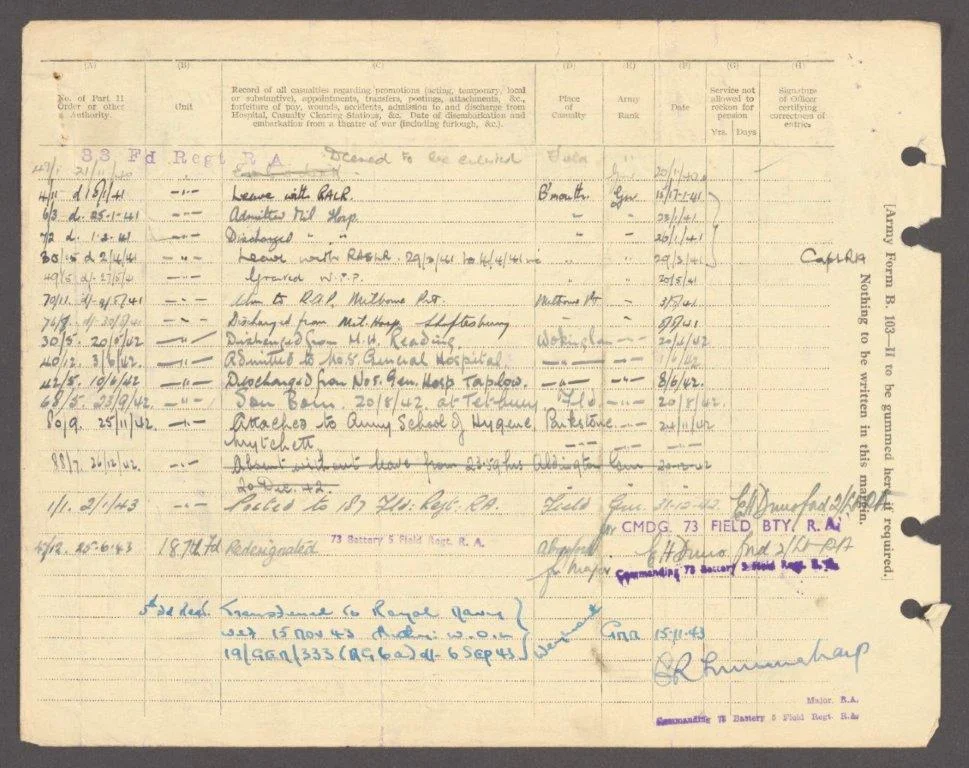 (A) (B) (C) (D) (E) (F) (G) (H)
No. of Part II Order or other Authority. Unit Record of all casualties regarding promotions (acting, temporary, local or substantive), appointments, transfers, postings, attachments, &c., forfeiture of pay, wounds, accidents, admission to and discharge from Hospital, Casualty Clearing Stations, &c. Date of disembarkation and embarkation from a theatre of war (including furlough, &c.). Place of Casualty Army Rank Date Service not allowed to reckon for pension Yrs. Days Signature of Officer certifying correctness of entries
33 Fd Regt R A.
Deemed to be
Leave with RALR. B'mouth. Gnr 15/17-1-41
6/3 d. 25-1-41 Admitted Mil Hosp. 23/1/41
72 d. 1-2-41 Discharged " " 26/1/41
30/15 d 2/4/41 Leave with 29/3/41 to 4/4/41 29/3/41 Capt RA
49/5 d/- 27/5/41 Granted W.P.P. 20/5/41
to R.A.P.
Discharged from Mil. Hosp. Shaftesbury
30/5. 20/5/42 Discharged from M.H. Reading. Wokingham 20/4/42
40/12. 3/6/42 Admitted to No.5 General Hospital. 1/6/42
42/5. 10/6/42 Discharged from No 5. Gen. Hosp Taplow. 8/6/42.
68/5. 23/9/42. Son Born. 20/8/42 at Tetbury Fld 20/8/42.
80/9. 25/11/42. Attached to Army School of Hygiene Parkstone 24/11/42
Mytchett.
88/7. 26/12/42. Absent without leave from 23.59 hrs Aldington Gnr 20-12-42
20 Dec. 42.
1/1. 2/1/43 Posted to 187 Fld. Regt. RA. Field Gnr. 31-12-42. 2/Lt RA
for CMDG. 73 FIELD BTY. R. A.
25-6-43 187th Fd Redesignated 73 Battery 5 Field Regt. R. A. 2/Lt RA
for Major Commanding 73 Battery 5 Field Regt. R.A.
5th Fd Regt. Transferred to Royal Navy
wef 15 Nov 43 Auth: W.O. Lr GNR 15-11-43
19/GEN/333 (AG6a) d/- 6 Sep 43
Major. R.A.
Commanding 73 Battery 5 Field Regt. R.A.
[Army Form B. 103—II to be gummed here if required.]
Nothing to be written in this margin.